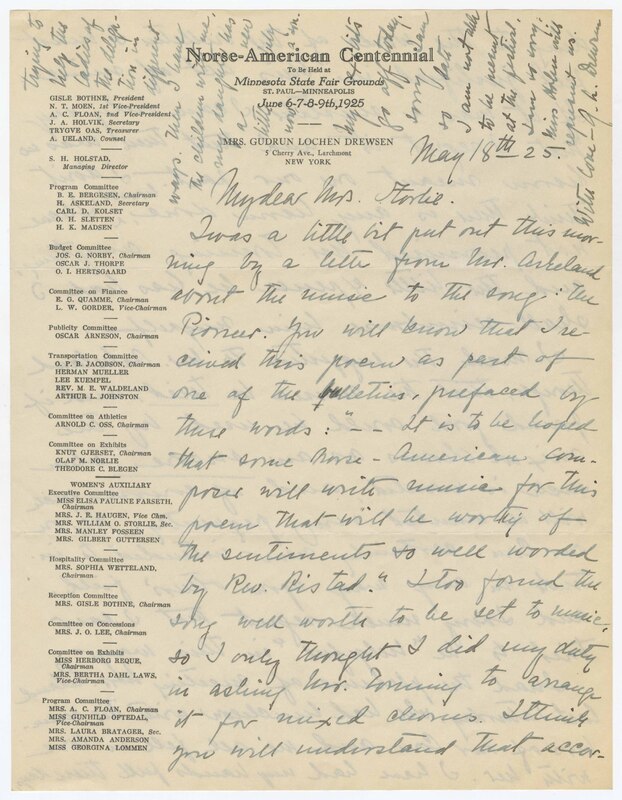 Norse-American Centennial
To Be Held at
Minnesota State Fair Grounds
ST. PAUL—MINNEAPOLIS
June 6-7-8-9th, 1925
MRS. GUDRUN LOCHEN DREWSEN
5 Cherry Ave., Larchmont
NEW YORK
GISLE BOTHNE, President
N. T. MOEN, 1st Vice-President
A. C. FLOAN, 2nd Vice-President
J. A. HOLVIK, Secretary
TRYGVE OAS, Treasurer
A. UELAND, Counsel
S. H. HOLSTAD,
Managing Director
Program Committee
B. E. BERGESEN, Chairman
H. ASKELAND, Secretary
CARL D. KOLSET
O. H. SLETTEN
H. K. MADSEN
Budget Committee
JOS. G. NORBY, Chairman
OSCAR J. THORPE
O. I. HERTSGAARD
Committee on Finance
E. G. QUAMME, Chairman
L. W. GORDER, Vice-Chairman
Publicity Committee
OSCAR ARNESON, Chairman
Transportation Committee
O. P. B. JACOBSON, Chairman
HERMAN MUELLER
LEE KUEMPEL
REV. M. E. WALDELAND
ARTHUR L. JOHNSTON
Committee on Athletics
ARNOLD C. OSS, Chairman
Committee on Exhibits
KNUT GJERSET, Chairman
OLAF M. NORLIE
THEODORE C. BLEGEN
WOMEN'S AUXILIARY
Executive Committee
MISS ELISA PAULINE FARSETH,
Chairman
MRS. J. E. HAUGEN, Vice Chm.
MRS. WILLIAM O. STORLIE, Sec.
MRS. MANLEY FOSSEEN
MRS. GILBERT GUTTERSEN
Hospitality Committee
MRS. SOPHIA WETTELAND,
Chairman
Reception Committee
MRS. GISLE BOTHNE, Chairman
Committee on Concessions
MRS. J. O. LEE, Chairman
Committee on Exhibits
MISS HERBORG REQUE,
Chairman
MRS. BERTHA DAHL LAWS,
Vice-Chairman
Program Committee
MRS. A. C. FLOAN, Chairman
MISS GUNHILD OFTEDAL,
Vice-Chairman
MRS. LAURA BRATAGER, Sec.
MRS. AMANDA ANDERSON
MISS GEORGINA LOMMEN
May 18th 25.
My dear Mrs. Storlie.
I was a little bit put out this mor-
ning by a letter from Mr. Askeland
about the music to the song: the
Pioneer. You will know that I re-
ceived this poem as part of
one of the bulletins, prefaced by
these words: "-- It is to be hoped
that some Norse-American com-
poser will write music for this
poem that will be worthy of
the sentiments so well worded
by Rev. Ristad." I too found the
song well worth to be set to music,
so I only thought I did my duty
in asking Mr. to arrange
it for mixed chorus. I think
you will understand that accor-
trying to
help the
ladies of
the
in
different
ways. Then I have
the children with me,
my daughter has
a new
little
now
a
go off today.
sorry I am
so late.
I am not able
to be present
at the festival.
I am so sorry.
Miss Holen will
represent us.
With love - G. L. Drewsen